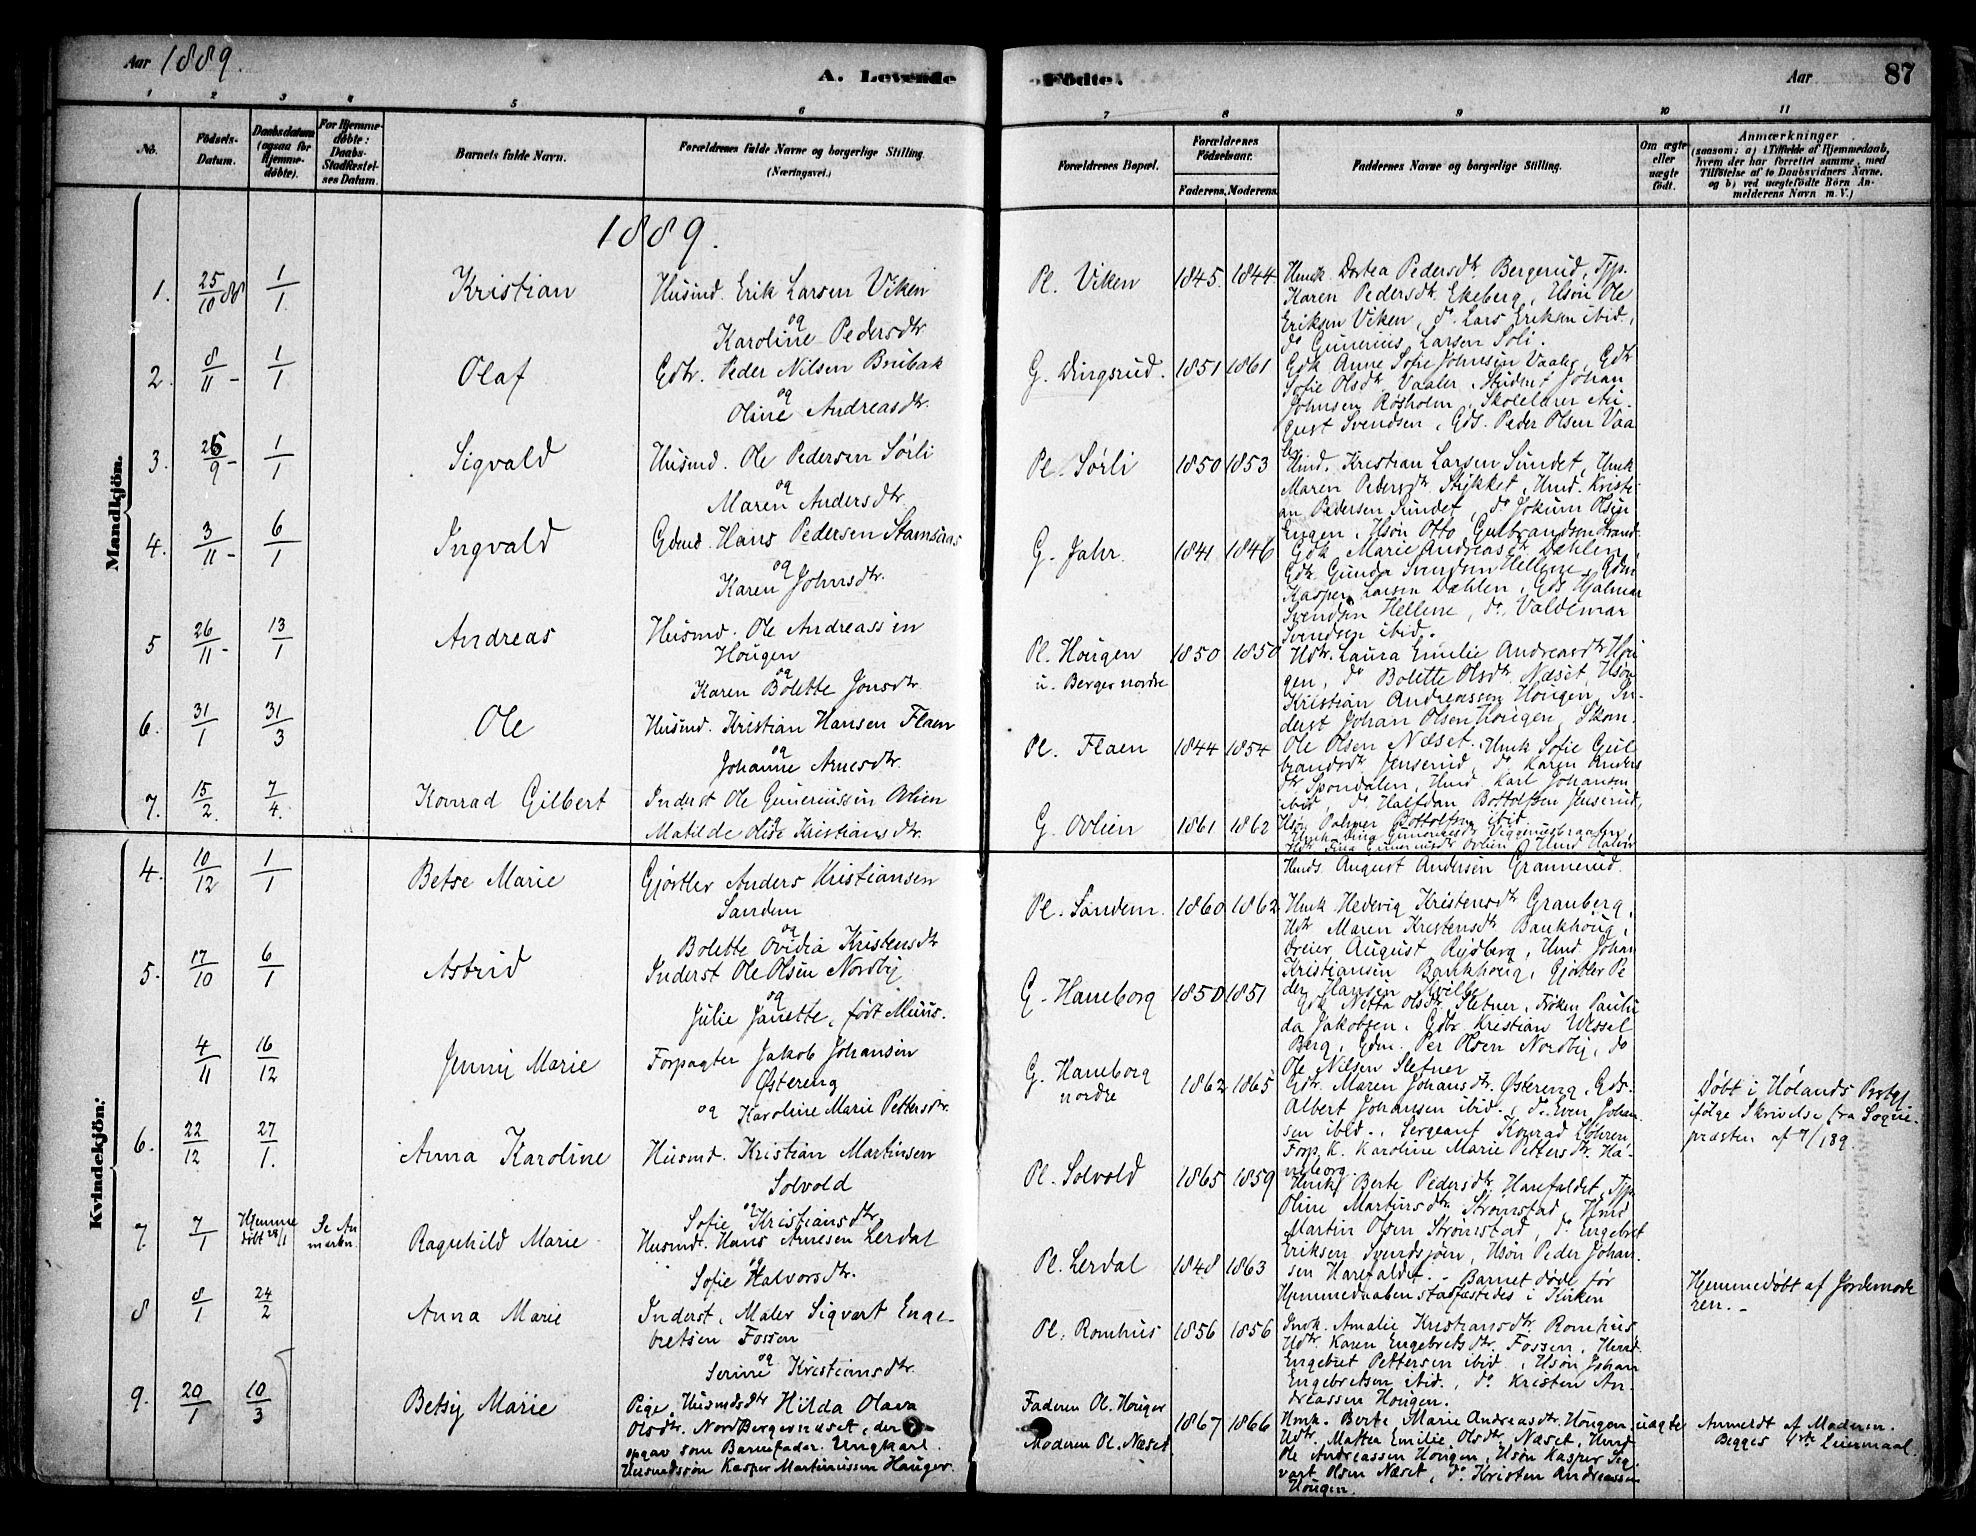 Aar 1889.
A. Levende Födte.
Aar 87
1 2 3 4 5 6 7 8 9 10 11
No.
Födsels-Datum.
Daabsdatum (ogsaa for Hjemme-døbte).
For Hjemme-døbte: Daabs-Stadfæstel-ses Datum.
Barnets fulde Navn.
Forældrenes fulde Navne og borgerlige Stilling.
(Næringsvei.)
Forældrenes Bopæl.
Forældrenes Födselsaar.
Faderens. Moderens.
Faddernes Navne og borgerlige Stilling.
Om ægte eller uægte født.
Anmærkninger
(saasom: a) i Tilfælde af Hjemmedaab, hvem der har forrettet samme, med Tilföielse af to Daabsvidners Navne, og b) ved uægtefödte Börn An-melderens Navn m. V.)
1889.
Mandkjön.
1. 25/10 88 1/1 Kristian
Husmd. Erik Larsen Viken
og
Karoline Pedersdtr
Pl. Viken 1845. 1844
Hmk. Dortea Pedersdtr. Bergerud, Tjp.
Karen Pedersdtr. Ekeberg, Hsøn Ole
Eriksen Viken, do. Lars Eriksen ibid.,
do Gunerius Larsen Soli.
2. 8/11 - 1/1 Olaf
Gdbr. Peder Nilsen Brubak
og
Oline Andreasdtr.
G. Dingsrud. 1851 1861
Gdk Anne Sofie Johnsen Vaaler, Gdtr
Sofie Olsdtr. Vaaler, Student Johan
Johnsen Røsholm, Skolelærer Au-
gust Svendsen, Gds. Peder Olsen Vaa
ler
3. 25/9 - 1/1 Sigvald
Husmd. Ole Pedersen Sørli
og
Maren Andersdtr.
Pl. Sørli 1850 1853
Hmd. Kristian Larsen Sundet, Hmk
Maren Pedersdtr Stykket, Hmd. Kristi-
an Pedersen Sundet, do Jokum Olsen
Engen, Hsøn Otto Gulbrandsen Strand
4. 3/11 - 6/1 Ingvald
Gdmd. Hans Pedersen Stamsaas
og
Karen Johnsdtr.
G. Jahr. 1841 1846
Gdk Marie Andreasdtr Dahlen,
Gdk Gunda Svendsen Hellene, Gdm
Kasper Larsen Dahlen, Gds Hjalmar
Svendsen Hellene, do. Valdemar
Svendsen ibid.
5 26/11 - 13/1 Andreas
Husmd. Ole Andreassen
Hougen
og
Karen Bolette Jonsdtr
Pl. Hougen
u. Berger nordre
1850 1850
Hdtr. Laura Emilie Andreasdtr Hou
gen, do Bolette Olsdtr. Næset, Hsøn
Kristian Andreassen Hougen, In-
derst Johan Olsen Hougen, Skom.
Ole Olsen Næset.
6. 31/1 31/3 Ole
Husmd. Kristian Hansen Flaen
og
Johanne Arnesdtr.
Pl. Flaen 1844 1854
Hmk Sofie Gul
brandsdtr Jenserud, do Karen Anders
dtr Spondalen, Hmd Karl Johansen
ibid, do Halfdan Bottolfsen Jenserud,
Hsøn Palmer Bottolfsen ibid.
7. 15/2. 7/4. Konrad Gilbert
Inderst Ole Guneriussen Ovlien
og
Matilde Olide Kristiansdtr.
G. Ovlien 1861 1862
Hmd Halvor
Hmds August Andersen Grannerud.
Kvindekjön.
4. 10/12 1/1 Betse Marie
Gjørtler Anders Kristiansen
Sandem
og
Bolette Ovidia Kristensdtr
Pl. Sandem. 1860 1862
Hmk Hedevig Kristensdtr Granberg,
Hdtr Maren Kristensdtr Bankhoug,
Dreier August Rydberg, Hmd Johan
Kristiansen Bankhoug, Gjørtler Pe
der Hansen Kvilbe
5. 17/10 6/1 Astrid
Inderst Ole Olsen Nordby
og
Julie Janette, født Muus.
G. Haneborg 1850 1851
Gdk Netta Olsdtr Sletner, Frøken Pauli
da Jakobsen, Gdbr Kristian Wessel
Berg, Gdm. Per Olsen Nordby, do
Ole Nilsen Sletner
4/11 16/12 Jenny Marie
Forpagter Jakob Johansen
Østereng
og Karoline Marie Pettersdtr.
G. Haneborg
nordre
1862 1865
Gdtr. Maren Johansdtr. Østereng, Gds.
Albert Johansen ibid., do. Even Johan
sen ibid., Sergeant Konrad Løhren,
Forp.k. Karoline Marie Pettersdtr Ha-
neborg
Døbt i Hølands Prstgj
ifølge Skrivelse fra Sogne-
præsten af 7/1 89.
6. 22/12 27/1. Anna Karoline
Husmd. Kristian Martinsen
Solvold
og
Sofie Kristiansdtr
Pl. Solvold 1865 1859
Hmk Berte Pedersdtr. Harefaldet, Tjp.
Oline Martinsdtr. Strømstad, Hmd
Martin Olsen Strømstad, do Engebret
Eriksen Svendsjøen, Hsøn Peder Johan
sen Harefaldet.
7. 7/1 Hjemme
døbt 28/1 Se An
mærkn. Ragnhild Marie
Husmd. Hans Arnesen Lerdal
og
Sofie Halvorsdtr.
Pl. Lerdal 1848 1863
- Barnet døde før
Hjemmedaaben stadfæstedes i Kirken
Hjemmedøbt af Jordemode
ren. -
8 8/1 24/2 Anna Marie
Inderst, Maler Sigvart Enge-
bretsen Fossen
og
Serine Kristiansdtr.
Pl. Romhus 1856 1856
Ink. Amalie Kristiansdtr. Romhus
Hdtr Karen Engebretsdtr. Fossen, Hmd
Engebret Pettersen ibid., Hsøn Johan
Engebretsen ibid., do Kristen An-
dreassen Hougen.
9. 20/1 10/3 Betsy Marie
Pige, Husmdsdtr Hilda Olava
Olsdtr. Nord Bergersnæset, der
opgav som Barnefader Ungkarl
Husmdssøn Kasper Martiniussen Hauger.
Faderen Pl. Houger
Moderen Pl. Næset
1867 1866
Hmk. Berte Marie Andreasdtr. Hougen
Hdtr. Mattea Emilie Olsdtr. Næset, Hmd
Ole Andreassen Hougen, Hsøn Kasper Sig
vart Olsen Næset, do. Kristen Andreassen
Hougen.
uægte
Anmeldt af Moderen.
Begges 1ste Leiermaal.